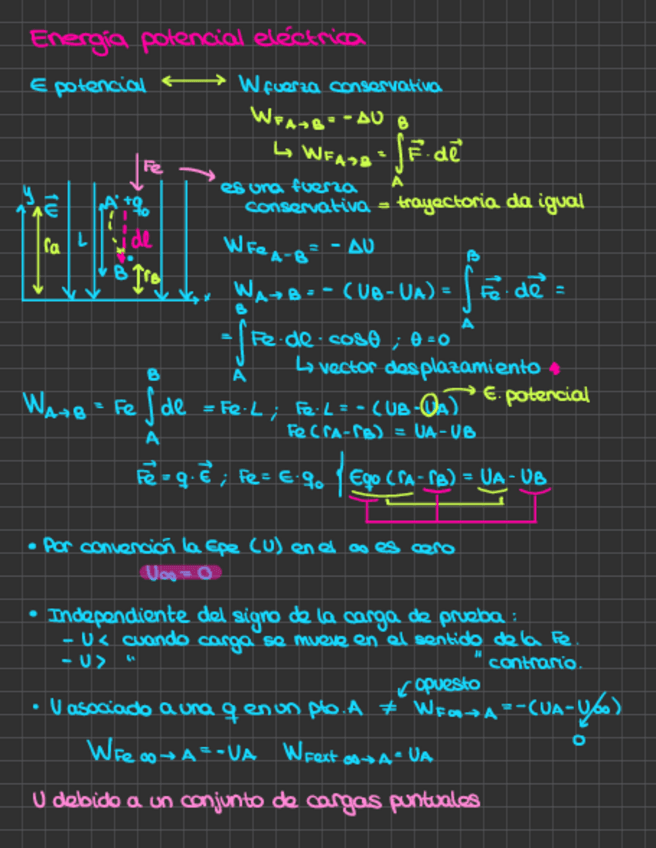 Energía potencial eléctrica
E potencial ⟷ W fuerza conservativa
W_{F A→B} = -ΔU
↳ W_{F A→B} = ∫_A^B F⃗ · dl⃗
Fe → es una fuerza conservativa = trayectoria da igual
y E⃗ A +q₀
ra L dl
B rB
x
W_{Fe A-B} = -ΔU
W_{A→B} = -(UB-UA) = ∫_A^B Fe⃗ · dl⃗ =
= ∫_A^B Fe · dl · cosθ ; θ=0
↳ vector desplazamiento
W_{A→B} = Fe ∫_A^B dl = Fe·L ; Fe·L = -(UB-UA) → E. potencial
Fe(rA-rB) = UA-UB
Fe⃗ = q·E⃗ ; Fe = E·q₀ { Eq₀(rA-rB) = UA-UB
• Por convención la Epe (U) en el ∞ es cero
U∞ = 0
• Independiente del signo de la carga de prueba :
- U < cuando carga se mueve en el sentido de la Fe.
- U > " " contrario.
opuesto
• U asociado a una q en un pto. A ≠ W_{F∞→A} = -(UA-U∞)
0
W_{Fe ∞→A} = -UA W_{Fext ∞→A} = UA
U debido a un conjunto de cargas puntuales